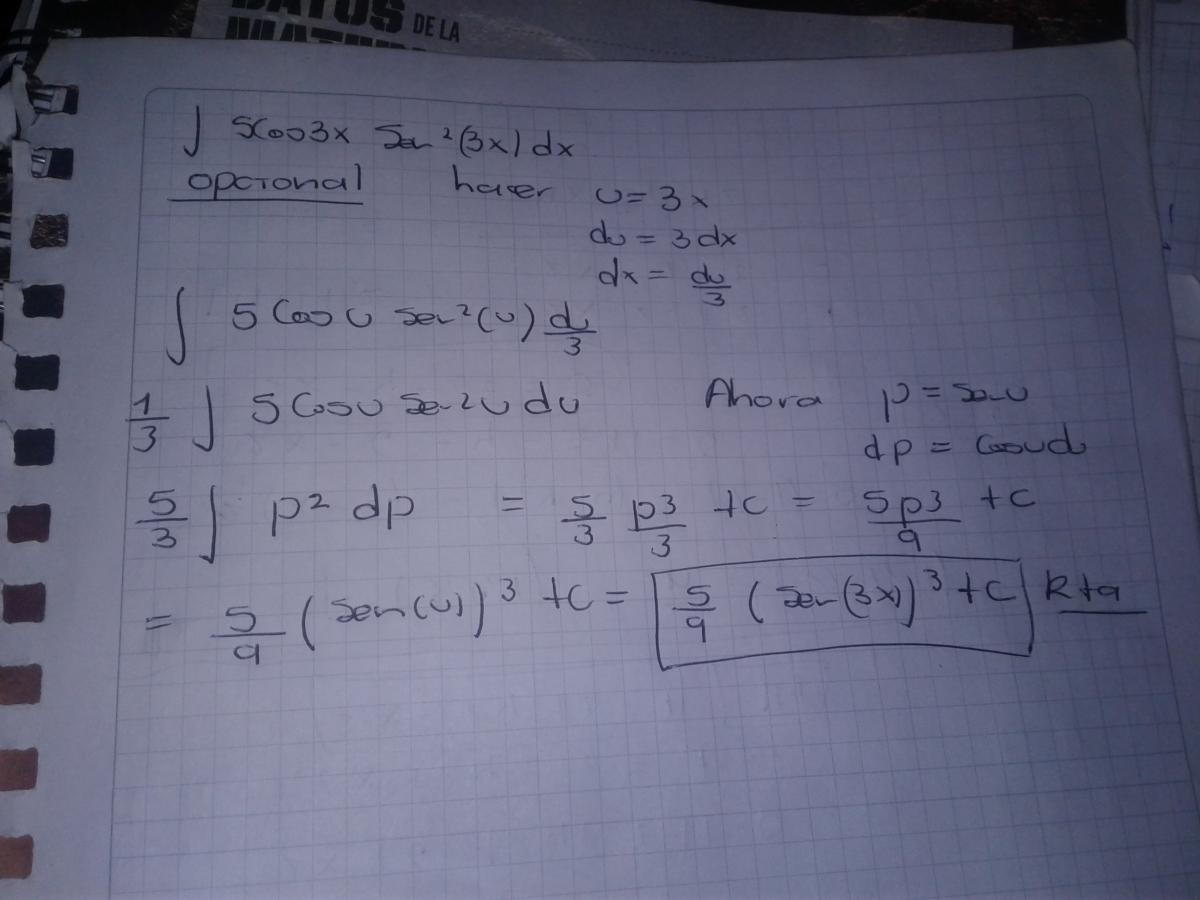 DATOS DE LA
∫ 5Cos3x Sen²(3x) dx
opcional hacer u = 3x
du = 3dx
dx = du/3
∫ 5 Cos u sen²(u) d/3
1/3 ∫ 5 Cosu Sen2u du Ahora p = senu
dp = Cosud
5/3 ∫ p² dp = 5/3 p³/3 + c = 5p3/9 + c
= 5/9 (sen(u))³ + c = 5/9 (sen(3x))³ + c Rta